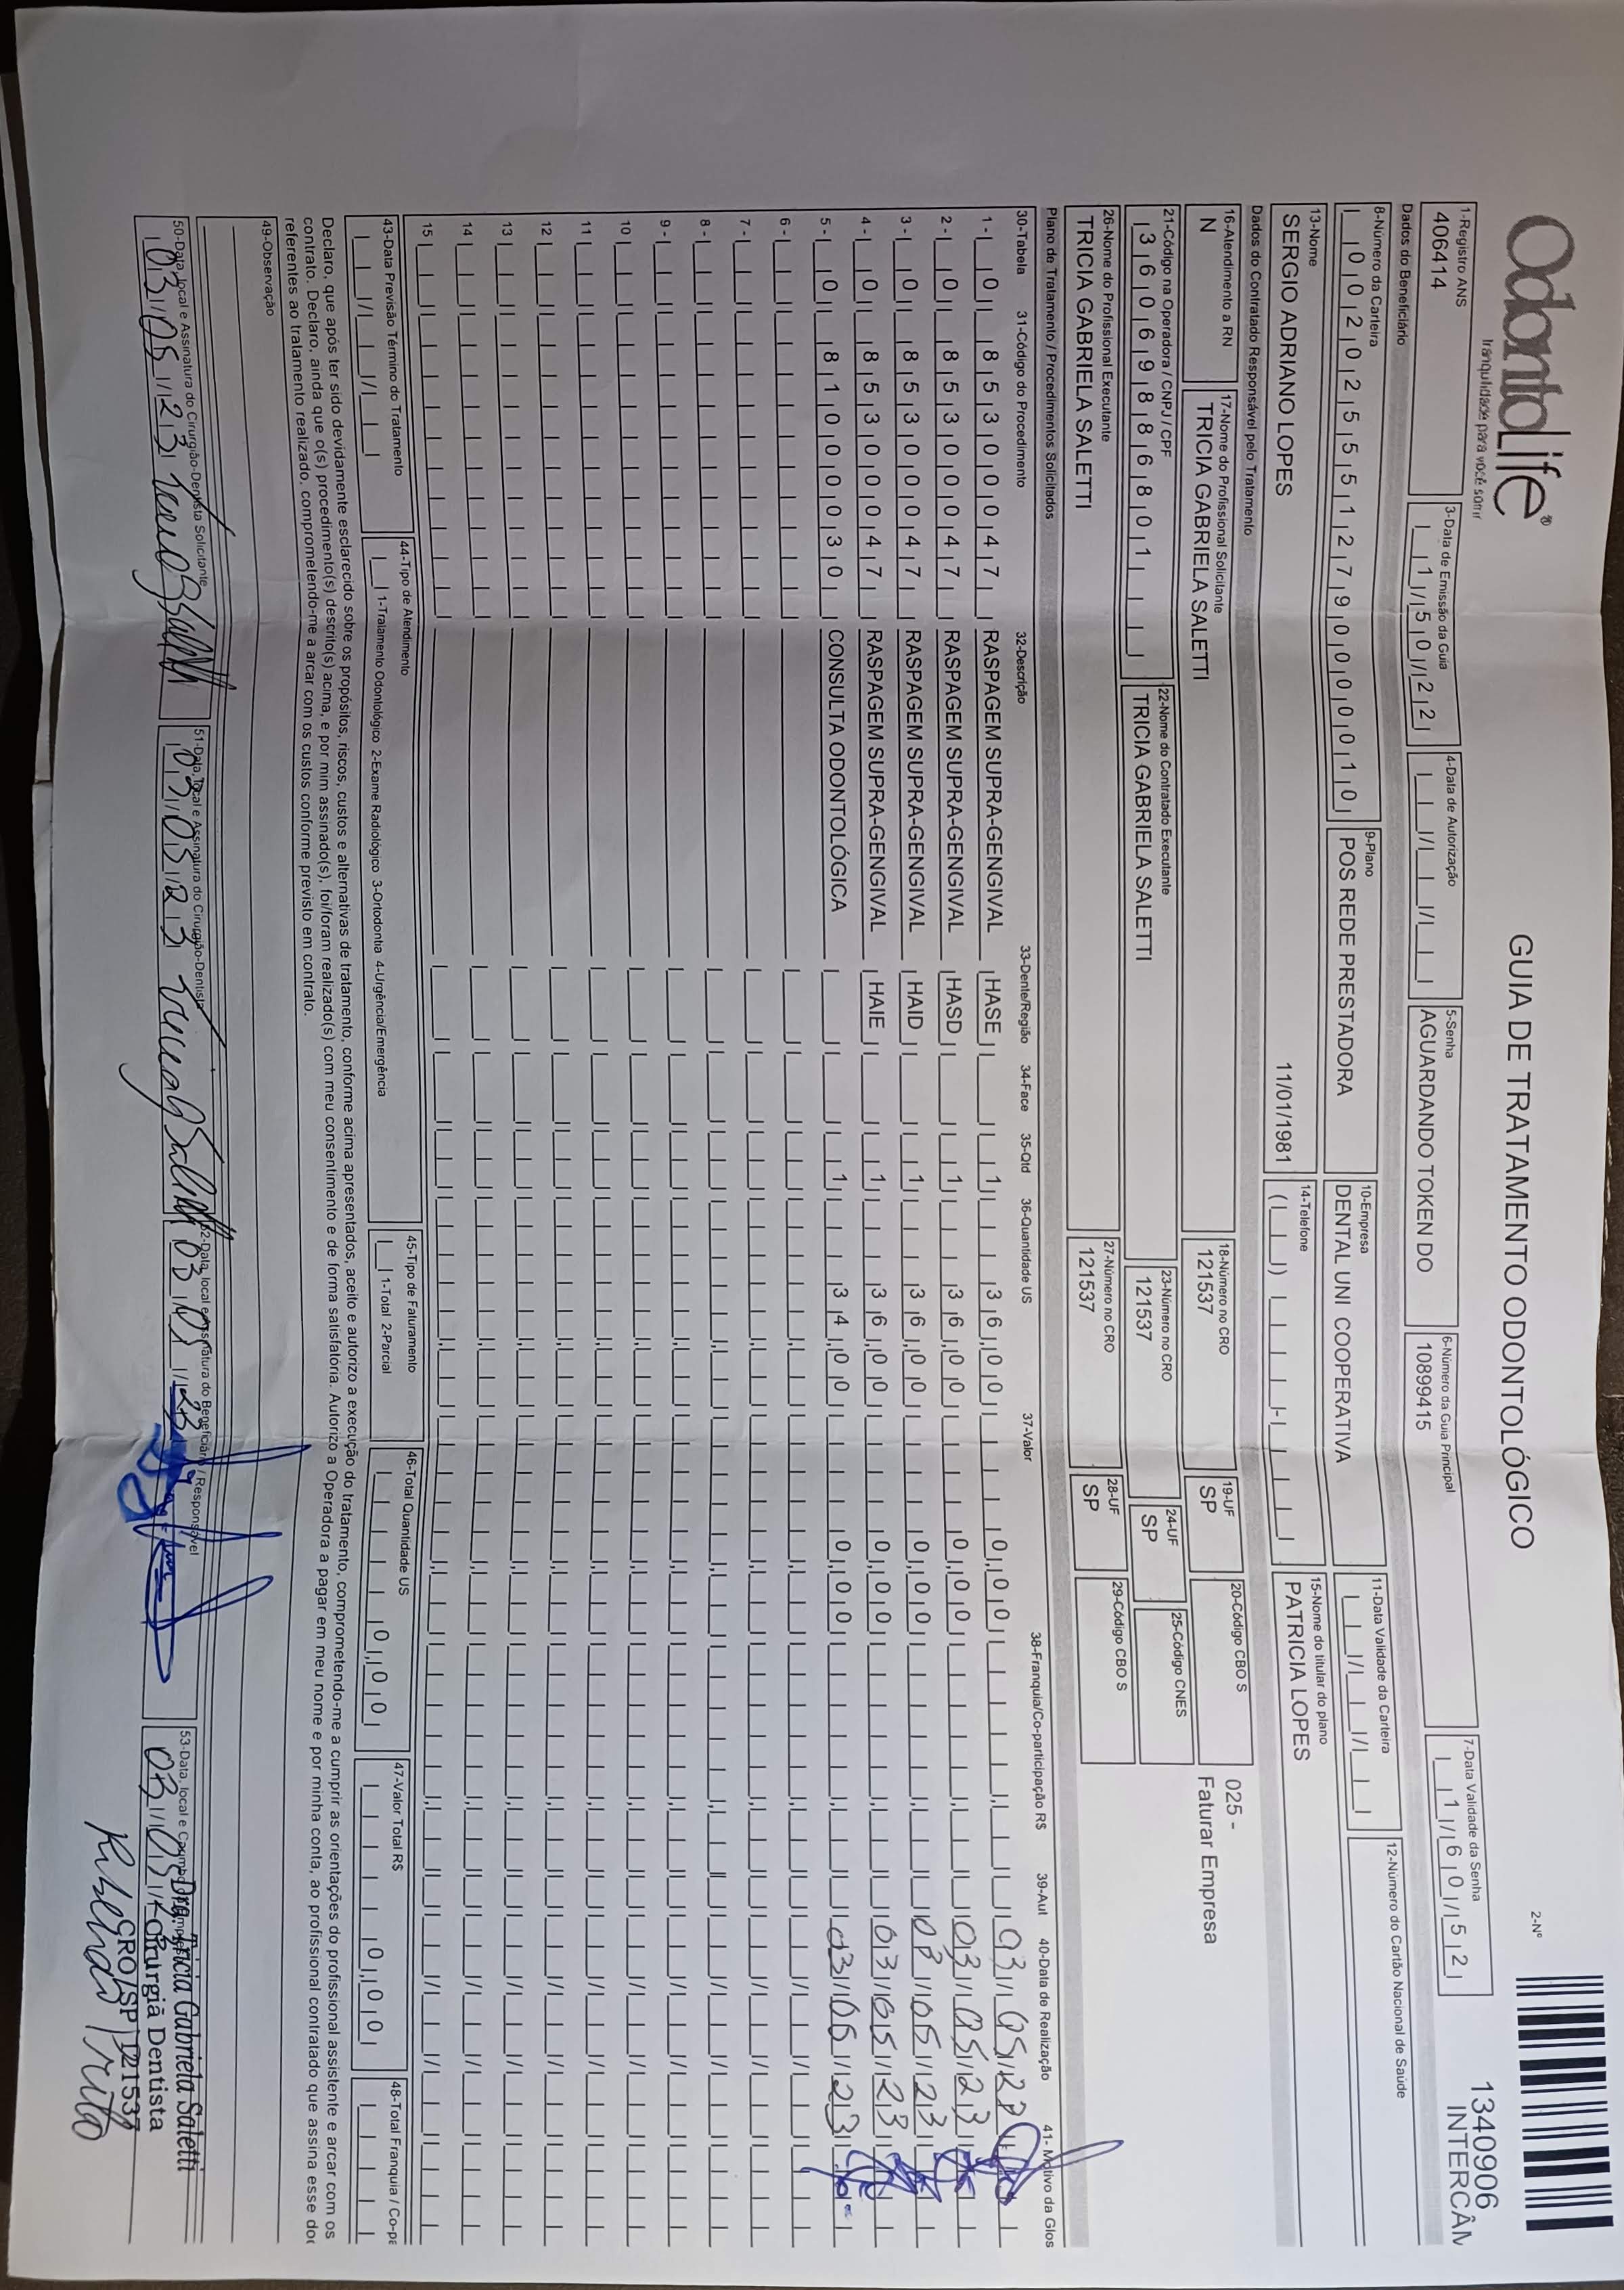 OdontoLife®
tranquilidade para você sorrir
GUIA DE TRATAMENTO ODONTOLÓGICO
2-Nº
1340906
INTERCÂM
1-Registro ANS
406414
3-Data de Emissão da Guia
1 / 5 0 / 2 2
4-Data de Autorização
5-Senha
AGUARDANDO TOKEN DO
6-Número da Guia Principal
10899415
7-Data Validade da Senha
1 / 6 0 / 5 2
Dados do Beneficiário
8-Número da Carteira
0 0 2 0 2 5 5 5 1 2 7 9 0 0 0 0 0 1 0
9-Plano
POS REDE PRESTADORA
10-Empresa
DENTAL UNI COOPERATIVA
11-Data Validade da Carteira
12-Número do Cartão Nacional de Saúde
13-Nome
SERGIO ADRIANO LOPES 11/01/1981
14-Telefone
15-Nome do titular do plano
PATRICIA LOPES
Dados do Contratado Responsável pelo Tratamento
16-Atendimento a RN
N
17-Nome do Profissional Solicitante
TRICIA GABRIELA SALETTI
18-Número no CRO
121537
19-UF
SP
20-Código CBO S
025 -
Faturar Empresa
21-Código na Operadora / CNPJ / CPF
3 6 0 6 9 8 8 6 8 0 1
22-Nome do Contratado Executante
TRICIA GABRIELA SALETTI
23-Número no CRO
121537
24-UF
SP
25-Código CNES
26-Nome do Profissional Executante
TRICIA GABRIELA SALETTI
27-Número no CRO
121537
28-UF
SP
29-Código CBO S
Plano de Tratamento / Procedimentos Solicitados
30-Tabela 31-Código do Procedimento 32-Descrição 33-Dente/Região 34-Face 35-Qtd 36-Quantidade US 37-Valor 38-Franquia/Co-participação R$ 39-Aut 40-Data de Realização 41- Motivo da Glos
1 - 0 8 5 3 0 0 0 4 7 RASPAGEM SUPRA-GENGIVAL HASE 1 3 6 , 0 0 0 , 0 0 03 / 05 / 23
2 - 0 8 5 3 0 0 0 4 7 RASPAGEM SUPRA-GENGIVAL HASD 1 3 6 , 0 0 0 , 0 0 03 / 05 / 23
3 - 0 8 5 3 0 0 0 4 7 RASPAGEM SUPRA-GENGIVAL HAID 1 3 6 , 0 0 0 , 0 0 03 / 05 / 23
4 - 0 8 5 3 0 0 0 4 7 RASPAGEM SUPRA-GENGIVAL HAIE 1 3 6 , 0 0 0 , 0 0 03 / 05 / 23
5 - 0 8 1 0 0 0 0 3 0 CONSULTA ODONTOLÓGICA 1 3 4 , 0 0 0 , 0 0 03 / 05 / 23
6 -
7 -
8 -
9 -
10
11
12
13
14
15
43-Data Previsão Término do Tratamento
44-Tipo de Atendimento
1-Tratamento Odontológico 2-Exame Radiológico 3-Ortodontia 4-Urgência/Emergência
45-Tipo de Faturamento
1-Total 2-Parcial
46-Total Quantidade US
0 , 0 0
47-Valor Total R$
0 , 0 0
48-Total Franquia / Co-pa
Declaro, que após ter sido devidamente esclarecido sobre os propósitos, riscos, custos e alternativas de tratamento, conforme acima apresentados, aceito e autorizo a execução do tratamento, comprometendo-me a cumprir as orientações do profissional assistente e arcar com os
contrato. Declaro, ainda que o(s) procedimento(s) descrito(s) acima, e por mim assinado(s), foi/foram realizado(s) com meu consentimento e de forma satisfatória. Autorizo a Operadora a pagar em meu nome e por minha conta, ao profissional contratado que assina esse doc
referentes ao tratamento realizado, comprometendo-me a arcar com os custos conforme previsto em contrato.
49-Observação
50-Data, local e Assinatura do Cirurgião-Dentista Solicitante
03 / 05 / 23
51-Data, local e Assinatura do Cirurgião-Dentista
03 / 05 / 23
52-Data, local e Assinatura do Beneficiário / Responsável
03 / 05 / 23
53-Data, local e Carimbo
03 / 05 /
Dra. Tricia Gabriela Saletti
Cirurgiã Dentista
CRO / SP 121537
Ribeirão Preto